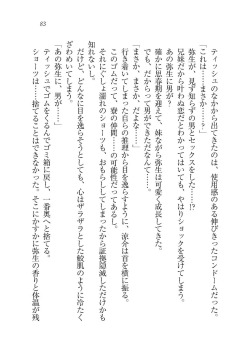 83
ティッシュのなかから出てきたのは、使用感のある伸びきったコンドームだった。
「これは……まさか……？」
弥生が、見ず知らずの男とセックスをした……!?
兄妹だから叶わぬ恋だとわかってはいても、やはりショックを受けてしまう。
「あの弥生に男が？
確かに思春期を迎えて、妹ながら弥生は可愛く成長してきた。
でも、だからって男がだなんて……。
「まさか、まさか、だよな……」
行き着いてしまった自らの推理から目を逸らすように、涼介は首を横に振る。
このゴムだって、寮の仲間……の可能性だってあるし。
それにぐしょ濡れのショーツも、おもらししてしまったから証拠隠滅しただけかも
知れないし。
だけど、どんなに目を逸らそうとしても、心はザラザラとした鮫肌のように冷たく
ざわめいてしまう。
「あの弥生に、男が……」
ティッシュでゴムをくるんでゴミ箱に戻し、一番奥へと捨てる。
ショーツは……捨てることはできなかった。そこにかすかに弥生の香りと体温が残